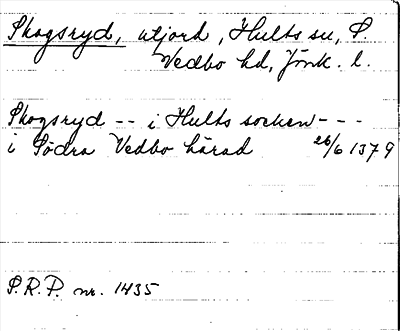 Skogsryd, utjord, Hults sn, S.
Vedbo hd, Jönk. l.
Skogsryd -- i Hults socken - - -
i Södra Vedbo härad 26/6 1379
S.R.P. nr. 1435